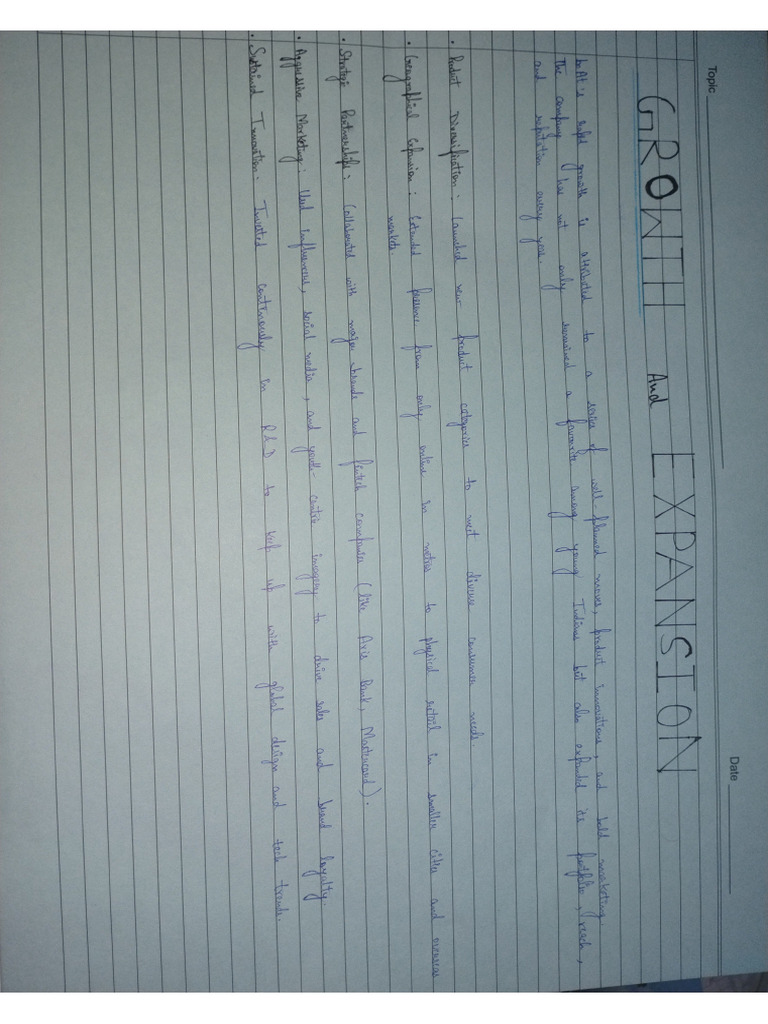 Topic
Date
GROWTH And EXPANSION
boAt's rapid growth is attributed to a series of well-planned moves, product innovations, and bold marketing.
The company has not only remained a favourite among young Indians but also expanded its portfolio, reach,
and reputation every year.
• Product Diversification: Launched new product categories to meet diverse consumer needs.
• Geographical Expansion: Extended presence from only online in metros to physical retail in smaller cities and overseas
markets
• Strategic Partnerships: Collaborated with major brands and fintech companies (like Axis Bank, Mastercard).
• Aggressive Marketing: Used influencers, social media, and youth-centric imagery to drive sales and brand loyalty.
• Sustained Innovation: Invested continuously in R&D to keep up with global design and tech trends.